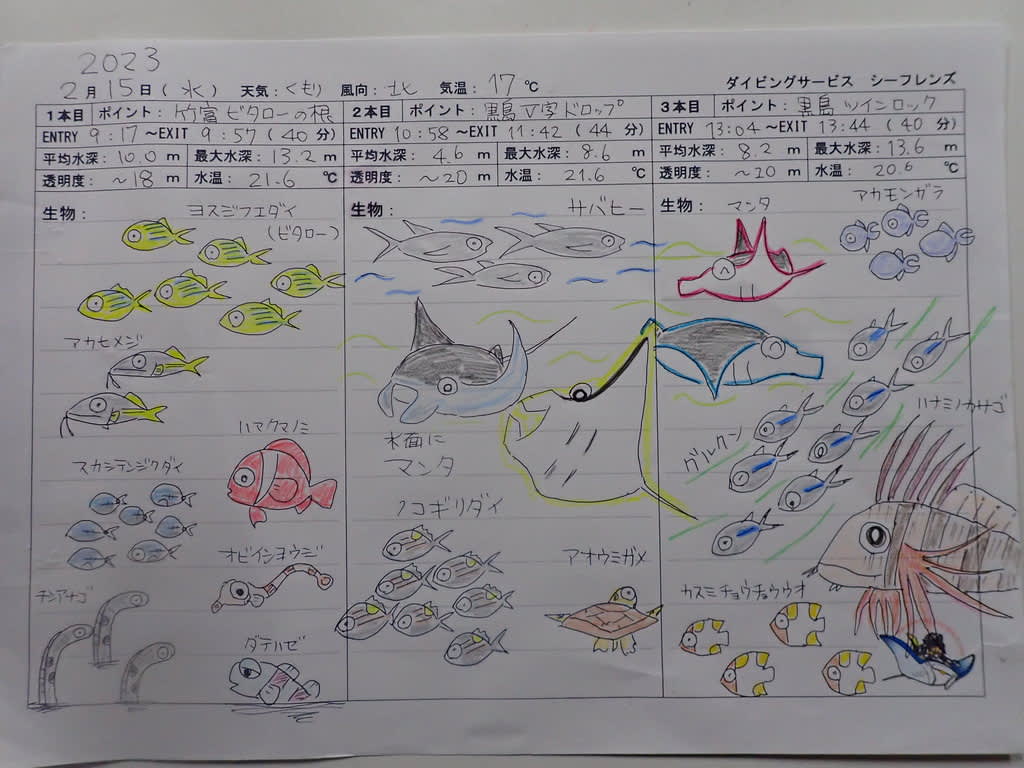 2023
2月15日(水) 天気:くもり 風向:北 気温:17℃
ダイビングサービス シーフレンズ
1本目 ポイント:竹富ビタローの根
ENTRY 9:17～EXIT 9:57(40分)
平均水深:10.0m 最大水深:13.2m
透明度:～18m 水温:21.6℃
生物:
ヨスジフエダイ
(ビタロー)
アカヒメジ
ハマクマノミ
スカシテンジクダイ
オビイシヨウジ
チンアナゴ
ダテハゼ
2本目 ポイント:黒島V字ドロップ
ENTRY 10:58～EXIT 11:42(44分)
平均水深:4.6m 最大水深:8.6m
透明度:～20m 水温:21.6℃
生物:
サバヒー
水面に
マンタ
ノコギリダイ
アオウミガメ
3本目 ポイント:黒島ツインロック
ENTRY 13:04～EXIT 13:44(40分)
平均水深:8.2m 最大水深:13.6m
透明度:～20m 水温:20.6℃
生物:
マンタ
アカモンガラ
ハナミノカサゴ
グルクン
カスミチョウチョウウオ